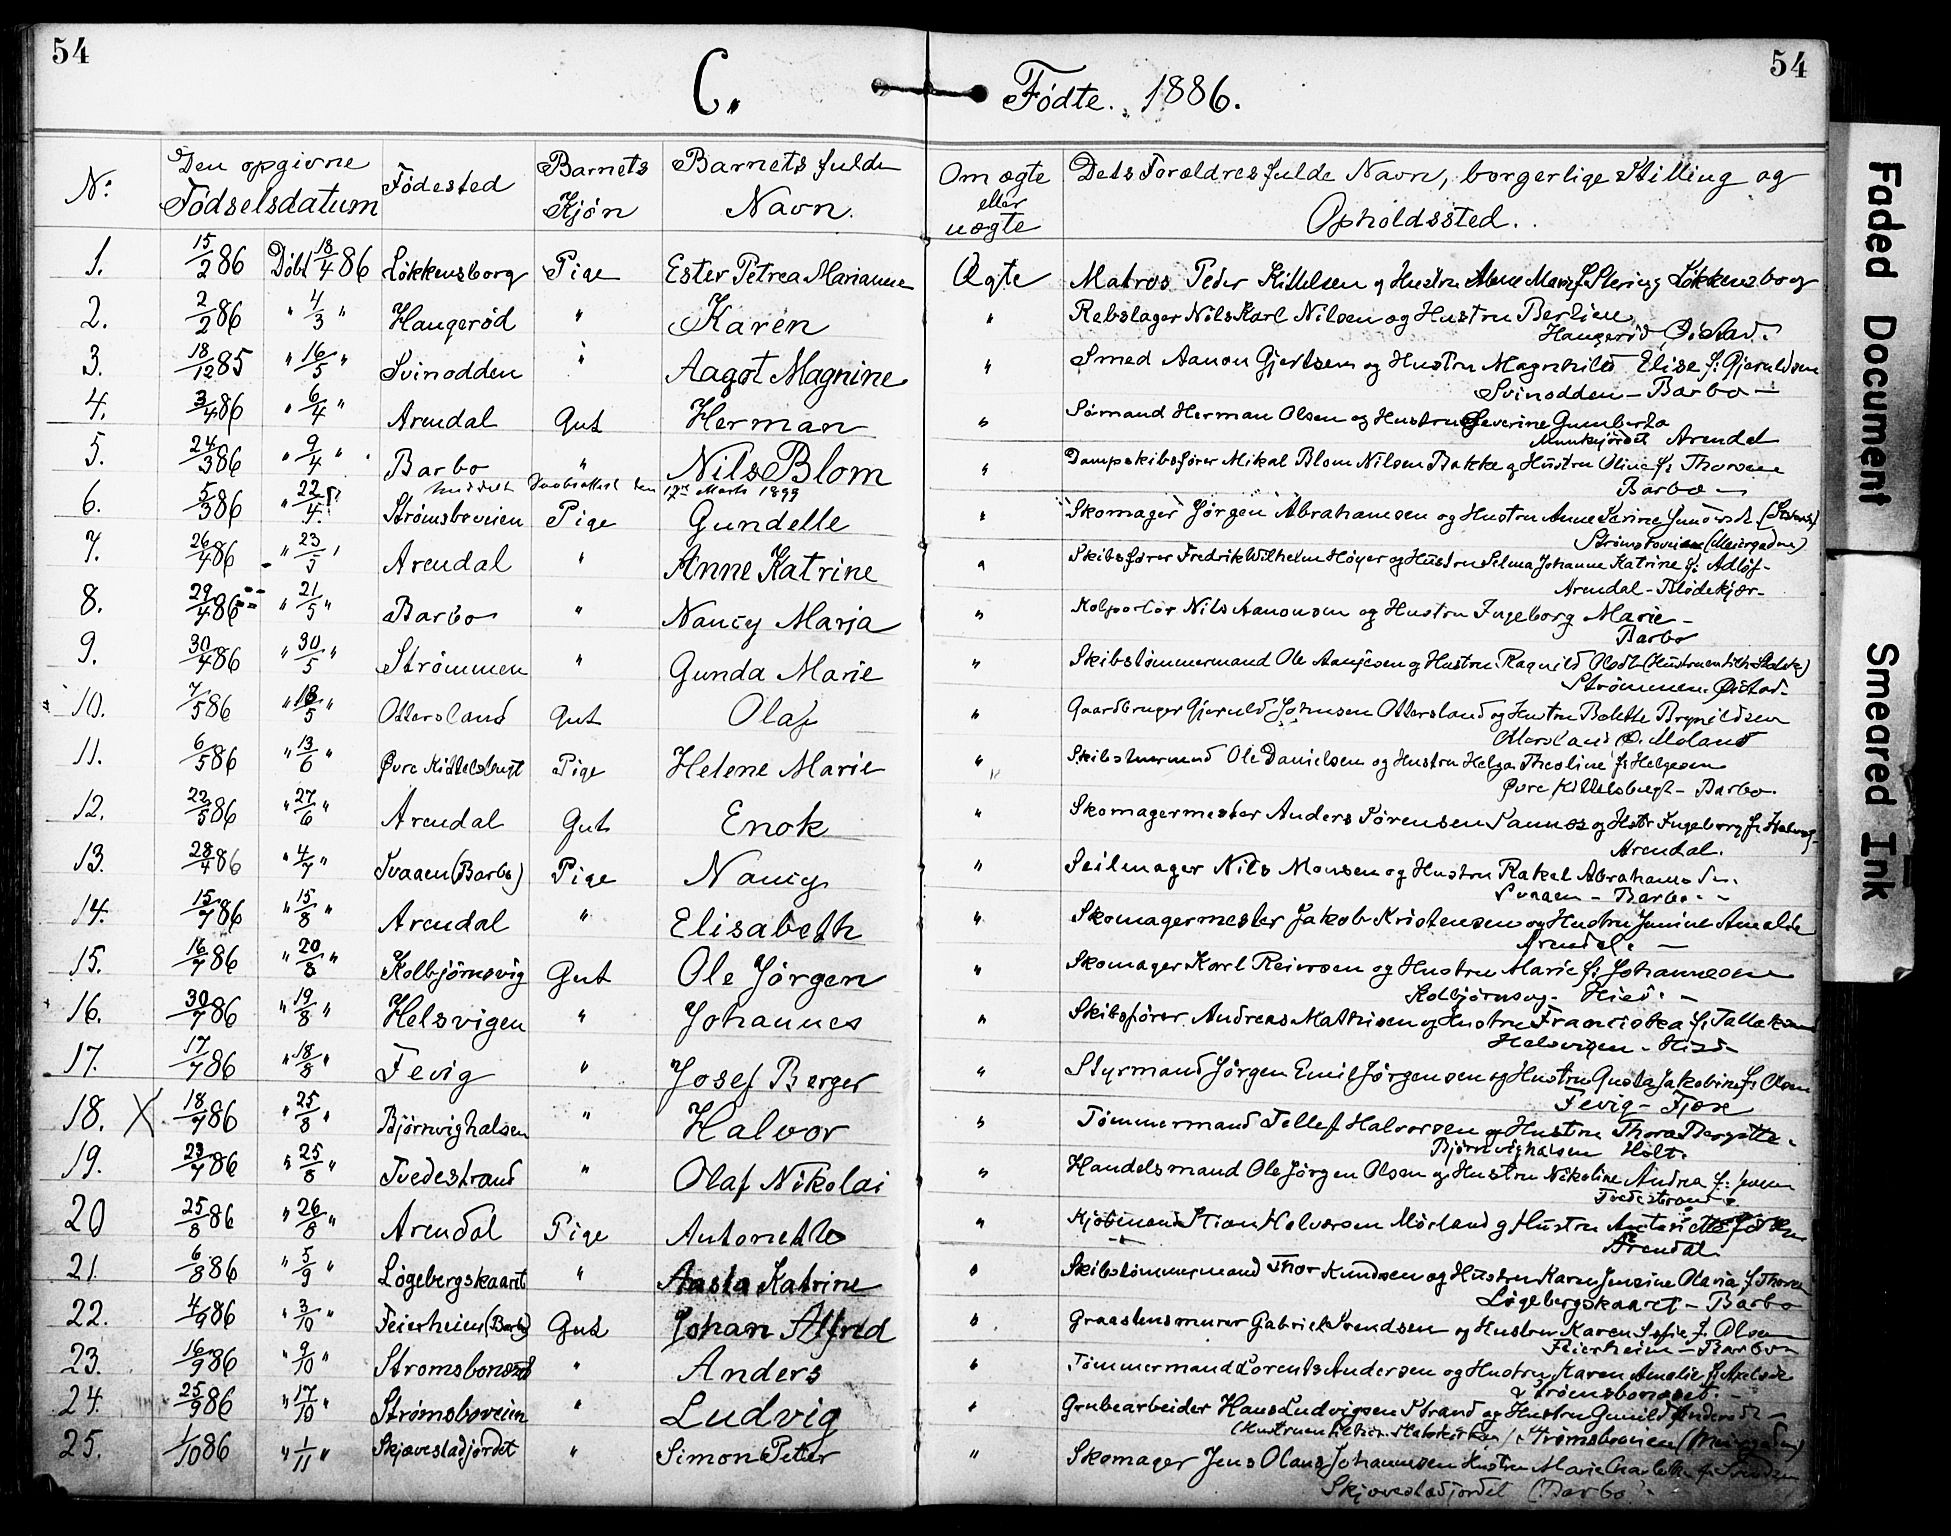 54
54
C.
Fødte. 1886.
No
Den opgivne Fødselsdatum
Fødested
Barnets Kjøn
Barnets fulde Navn.
Om ægte eller uægte
Dets Forældres fulde Navn, borgerlige Stilling og Opholdssted.
1. 15/2 86 Døbt 18/4 86 Løkkensborg Pige Ester Petrea Marianne Ægte Matros Peder Kittelsen og Hustru Løkkensborg
2. 2/2 86 " 4/3 " Haugerød " Karen " Rebslager Nils Karl Nilsen og Hustru Berzien
Haugerød, Øistad.
3. 18/12 85 " 16/5 " Svinodden " Aagot Magnine " Smed Aanon Gjertsen og Hustru Magnhild Elise f: Gjeruldsen
Svinodden – Barbo –
4. 3/4 86 " 6/4 " Arendal Gut Herman " Sømand Herman Olsen og Hustru Severine Gumberta
Munkejordet Arendal
5. 24/3 86 " 9/4 " Barbo " Nils Blom " Dampskibsfører Mikal Blom Nilsen Bakke og Hustru Oline f: Thorsen
Barbo –
17de Marts 1899
6. 5/3 86 " 22/4 Strømsboveien Pige Gundelle " Skomager Jørgen Abrahamsen og Hustru Anne Serine
Strømsboveien
7. 26/4 86 " 23/5 " Arendal " Anne Katrine " Skibsfører Fredrik Wilhelm Høyer og Hustru Selma Johanne Katrine f: Adløf-
Arendal – Blødekjær –
8. 29/4 86 " 21/5 " Barbo " Nancy Marja " Kolportør Nils Aanonsen og Hustru Ingeborg Marie –
Barbo
9. 30/4 86 " 30/5 " Strømmen " Gunda Marie " Skibstømmermand Ole Aanjesen og Hustru Ragnild
Strømmen. Øistad –
10. 7/5 86 " 18/5 " Ottersland Gut Olaf " Gaardbruger Gjeruld Johnsen Ottersland og Hustru Bolette Brynildsen
Ø. Moland
11. 6/5 86 " 13/6 " Øvre Kittelsbugt Pige Helene Marie " Ole Danielsen og Hustru Helga Theoline f: Helgesen
Øvre Kittelsbugt – Barbo.
12. 22/5 86 " 27/6 " Arendal Gut Enok " Skomagermester Anders Sørensen Sannes og Hustr Ingeborg f:
Arendal.
13. 28/4 86 " 4/7 " Svaaen (Barbo) Pige Nancy " Seilmager Nils Monsen og Hustru Rakel Abrahams
Svaaen – Barbo. –
14. 15/7 86 " 15/8 " Arendal " Elisabeth " Skomagermester Jakob Kristensen og Hustru Janine Amalde
Arendal. –
15. 16/7 86 " 20/8 " Kolbjørnsvig Gut Ole Jørgen " Skomager Karl Reiersen og Hustru Marie f: Johannesen
Kolbjørnsvg. Hisø. –
16. 30/7 86 " 19/8 " Helsvigen " Johannes " Skibsfører Andreas Mathisen og Hustru Franciska f: Tallaksen
Helsvigen – Hisø –
17. 17/7 86 " 18/8 " Fevig " Josef Berger " Styrmand Jørgen Emil Jørgensen og Hustru Gusta Jakobine f: Olsen
Fevig – Fjære
18. X 18/7 86 " 25/8 " Bjørnvighalsen " Halvor " Tømmermand Tellef Halvorsen og Hustru Thora Bergitte.
Bjørnvighalsen Holt.
19. 23/7 86 " 25/8 " Tvedestrand " Olaf Nikolai " Handelsmand Ole Jørgen Olsen og Hustru Nikoline Andrea f: Jensen
Tvedestrand.
20 25/8 86 " 26/8 " Arendal Pige Antonette " Kjøbmand Stian Halvorsen Mørland og Hustru
Arendal.
21. 6/8 86 " 5/9 " Løgebergskaaret " Aasta Katrine " Skibstømmermand Thor Knudsen og Hustru Karen Jensine Olavia f:
Løgebergskaaret – Barbo
22. 4/9 86 " 3/10 " Feierheien (Barbo) Gut Johan Alfred " Graastensmurer Gabriel Svendsen og Hustru Karen Sofie f: Olsen
Feierheien – Barbo
23. 16/9 86 " 9/10 " Strømsboneset " Anders " Tømmermand Lorents Andersen og Hustru Karen Amalie f:
Strømsboneset. –
24. 25/9 86 " 17/10 " Strømsboveien " Ludvig " Grubearbeider Hans Ludvigsen Strand og Hustru Gunild
Strømsboveien
25. 1/10 86 " 1/11 " Skjævestadjordet " Simon Peter " Skomager Jens Olaus Johannsen Hustru Marie
Skjævestadjordet (Barbo)
Faded Document
Smeared Ink